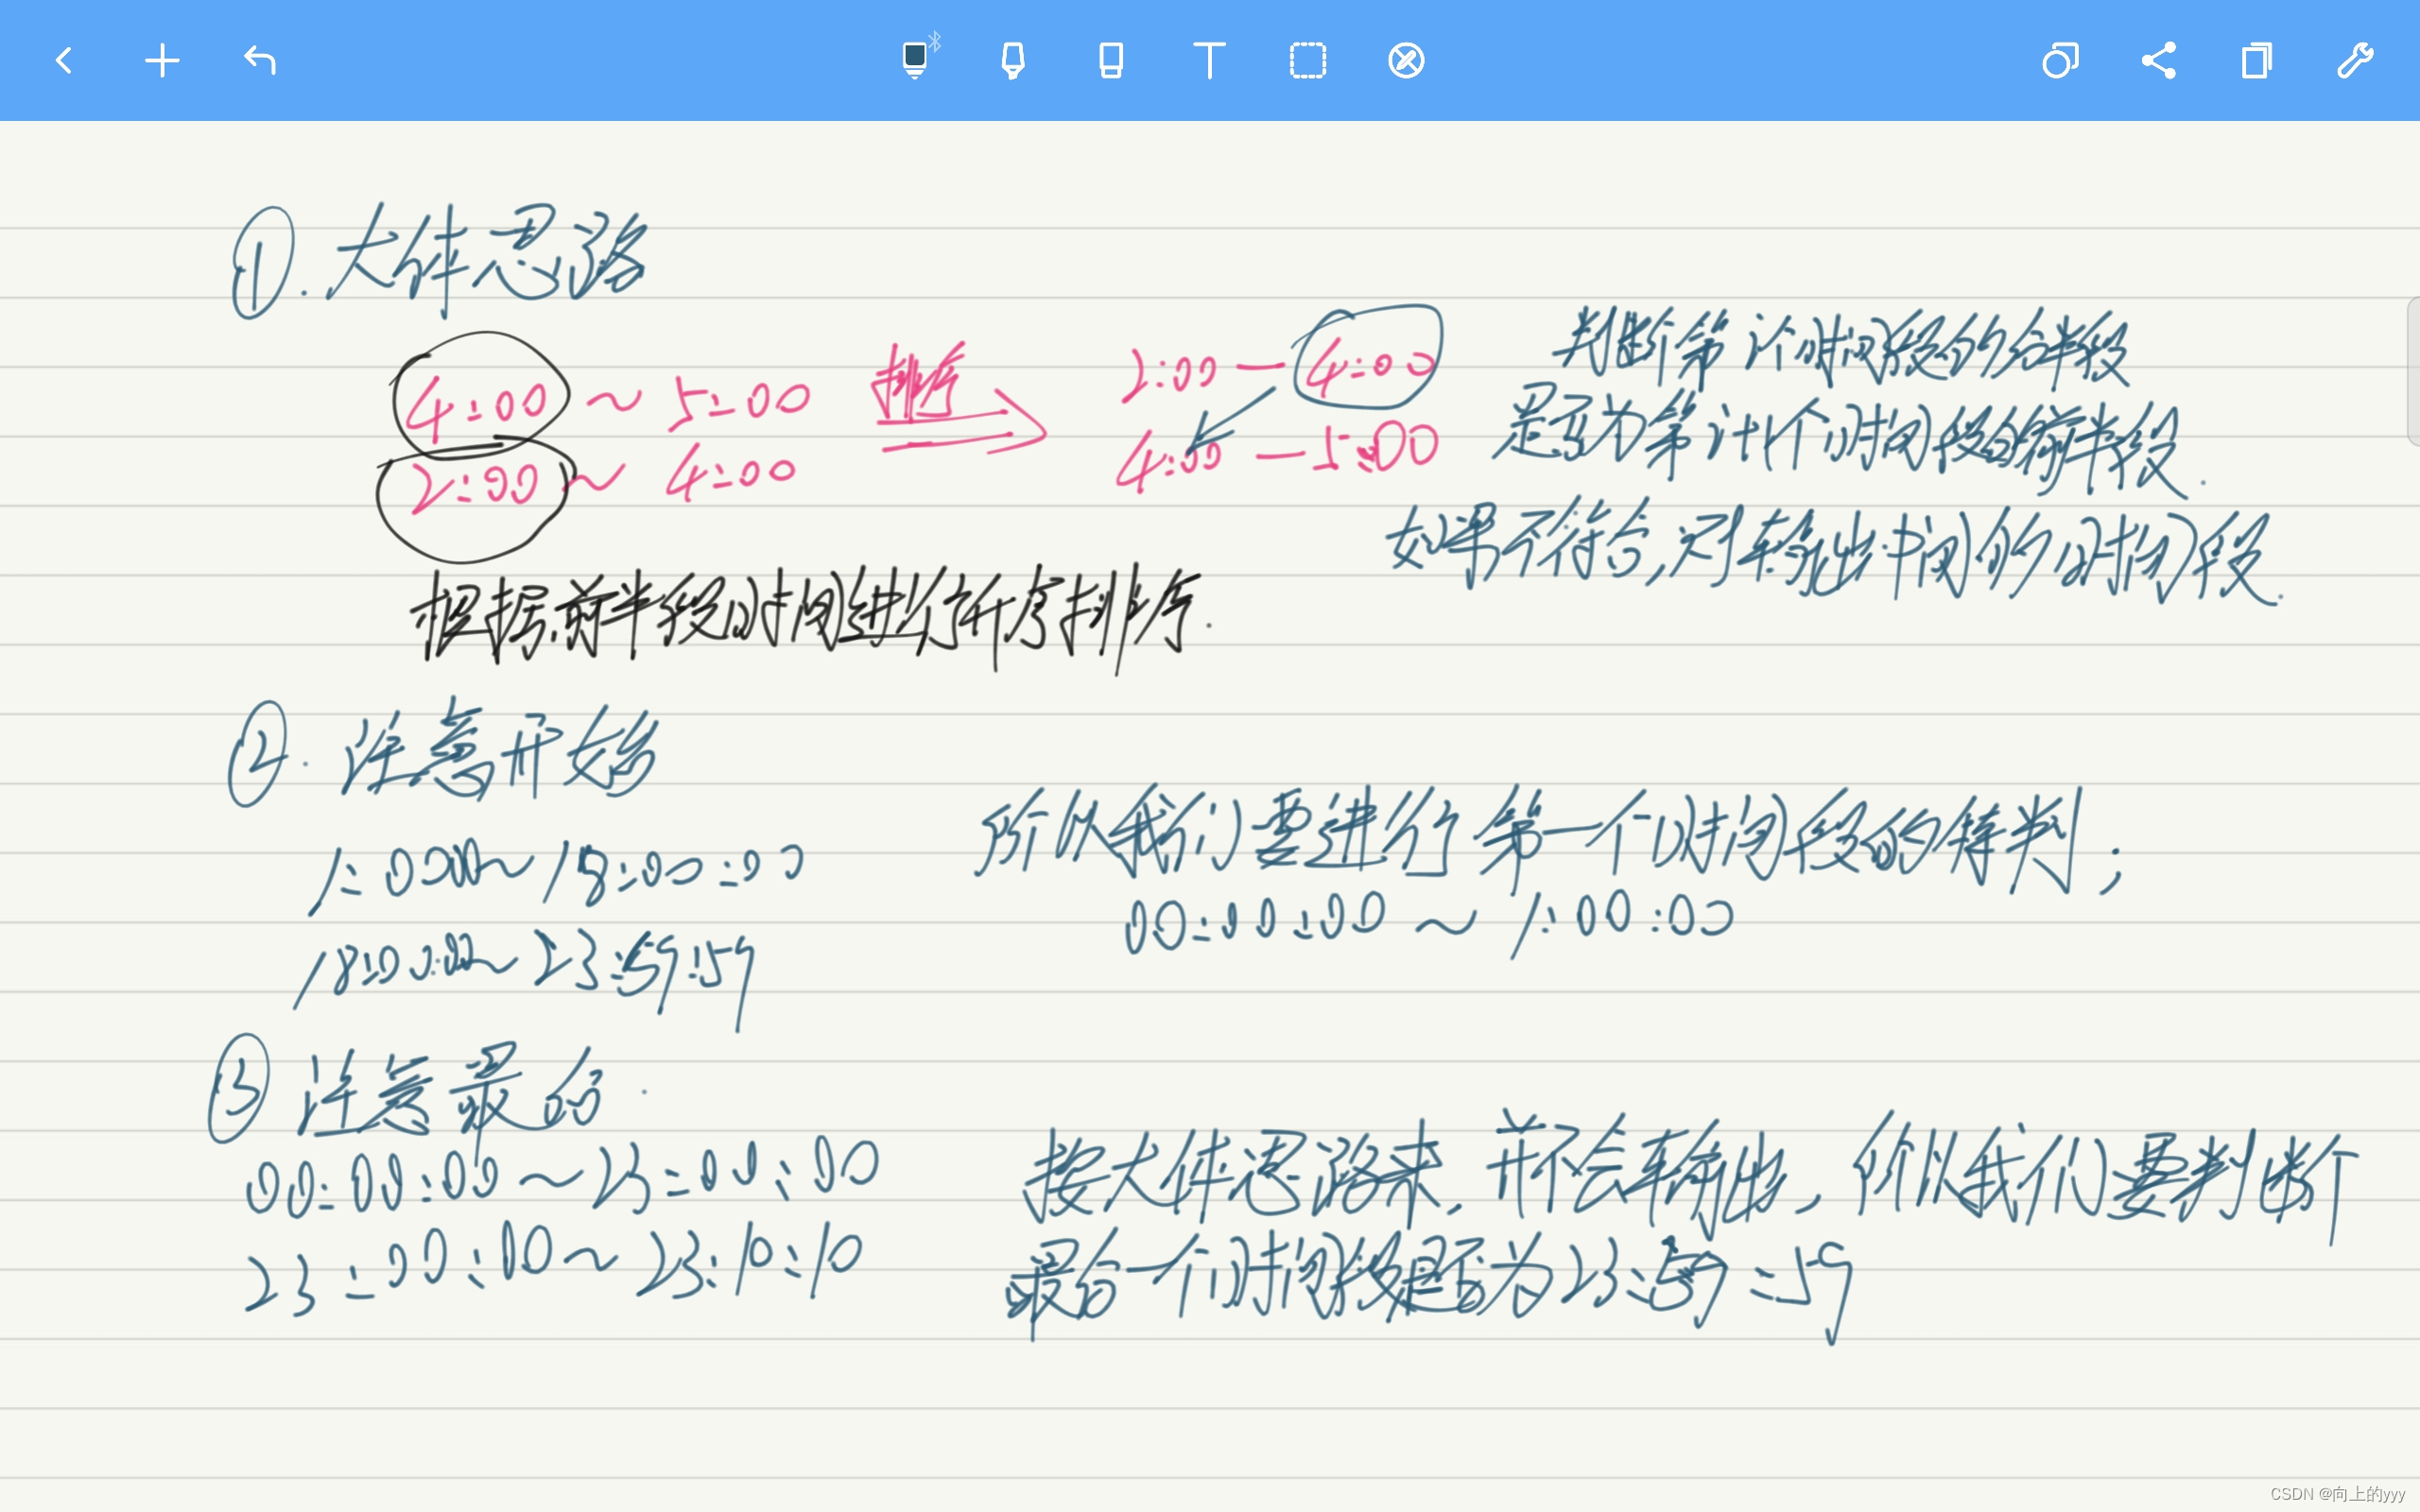 ①. 大体思路
4:00 ~ 5:00 排序 2:00 — 4:00
2:00 ~ 4:00 4:00 — 5:00
判断第i个时间段的后半段
是否为第i+1个时间段的前半段.
如果不符合,则输出中间的时间段.
根据前半段时间进行升序排序.
②. 注意开始
1:00:00~18:00:00
18:00:00~23:59:59
所以我们要进行第一个时间段的特判;
00:00:00 ~ 1:00:00
③ 注意最后.
00:00:00 ~23:00:00
23:00:00~23:10:10
按大体思路来,并不会输出,所以我们要判断
最后一个时间段是否为23:59:59
CSDN @向上的yyy